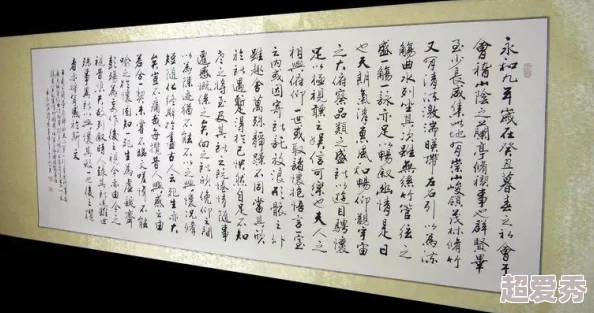 永和九年歲在癸丑暮春之初會于
會稽山陰之蘭亭脩禊事也群賢畢
至少長咸集此地有崇山峻領茂林脩竹
又有清流激湍映帶左右引以為流
觴曲水列坐其次雖無絲竹管弦之
盛一觴一詠亦足以暢敘幽情是日
也天朗氣清惠風和暢仰觀宇宙
之大俯察品類之盛所以遊目騁懷
足以極視聽之娛信可樂也夫人之
相與俯仰一世或取諸懷抱悟言一室
之內或因寄所託放浪形骸之外
雖趣舍萬殊靜躁不同當其欣
於所遇暫得於己怏然自足不知
老之將至及其所之既倦情隨事
遷感慨係之矣向之所欣俛仰之間
以為陳迹猶不能不以之興懷況脩
短隨化終期於盡古人云死生亦大
矣豈不痛哉每攬昔人興感之由
若合一契未嘗不臨文嗟悼不能
喻之於懷固知一死生為虛誕齊
彭殤為妄作後之視今亦由今之
視昔悲夫故列敘時人錄其所述雖世
殊事異所以興懷其致一也後之攬
者亦將有感於斯文
超爱秀